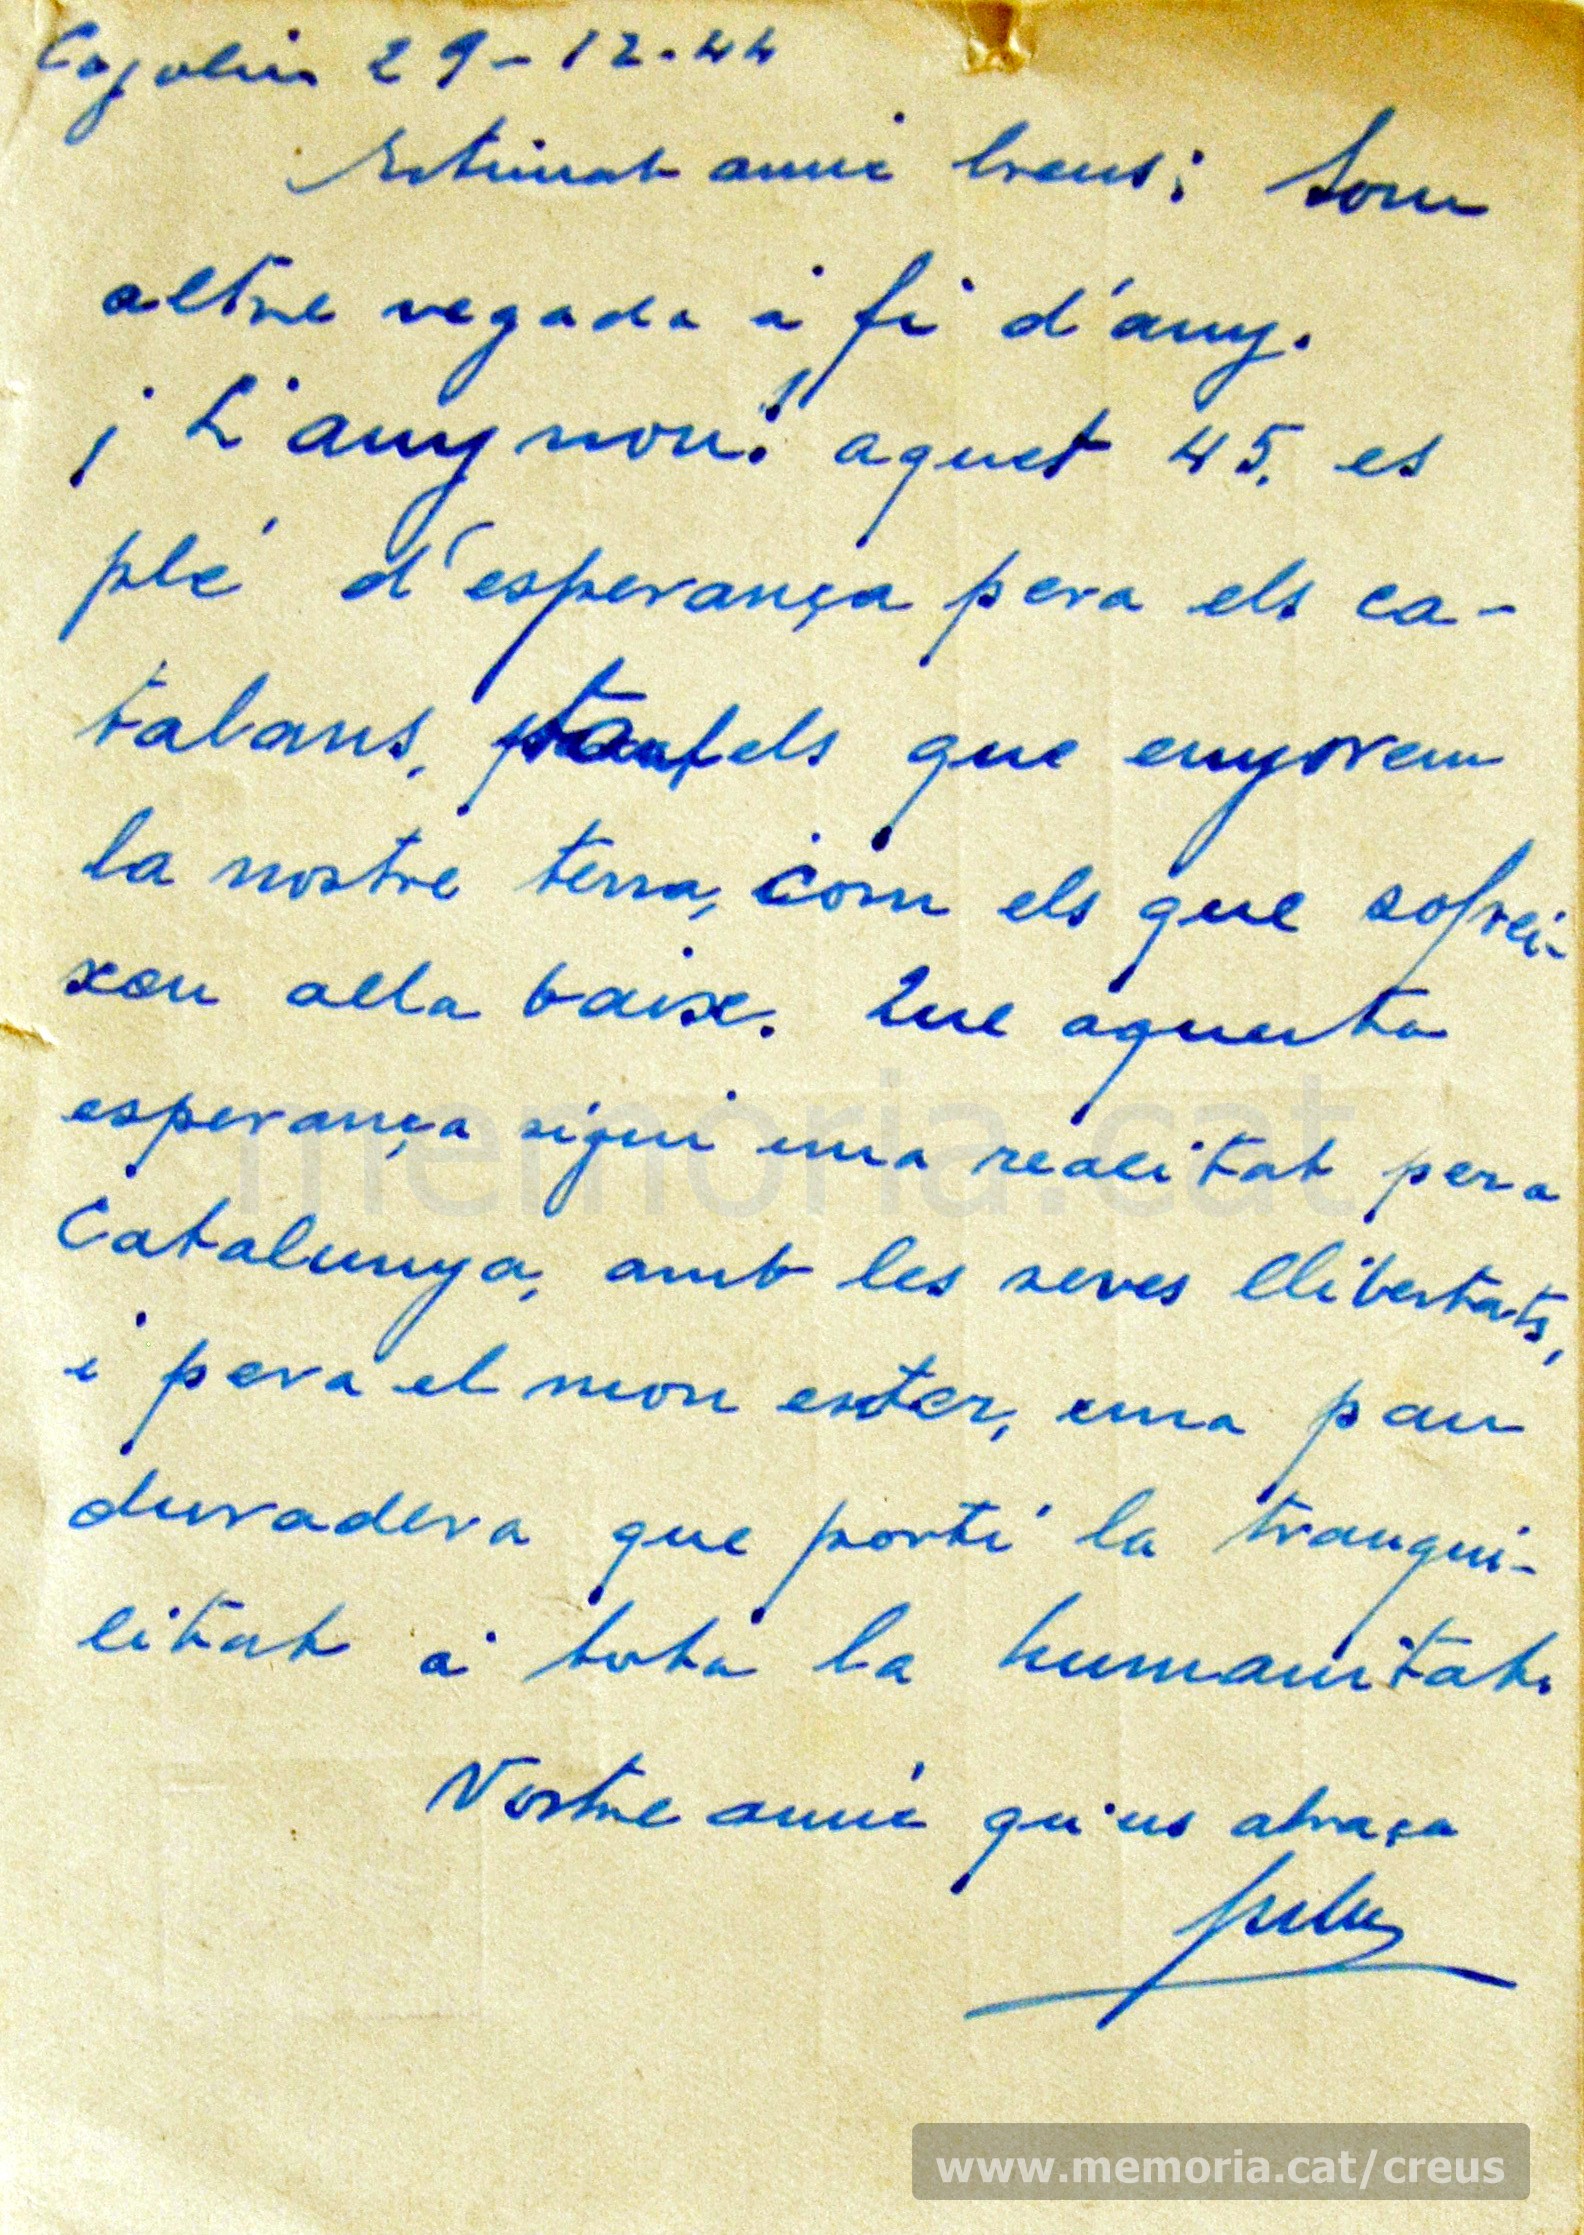 Cogolin 29-12-44
Estimat amic Creus: Som
altre vegada a fi d'any.
¡L'any nou! aquet 45, es
plé d'esperança pera els ca-
talans, tan els que enyorem
la nostre terra, com els que sofrei-
xen alla baix. Que aquesta
esperança sigui una realitat pera
Catalunya, amb les seves llibertats,
i pera el mon enter, una pau
duradera que porti la tranqui-
litat a tota la humanitat.
Vostre amic qu'us abraça
memoria.cat
www.memoria.cat/creus